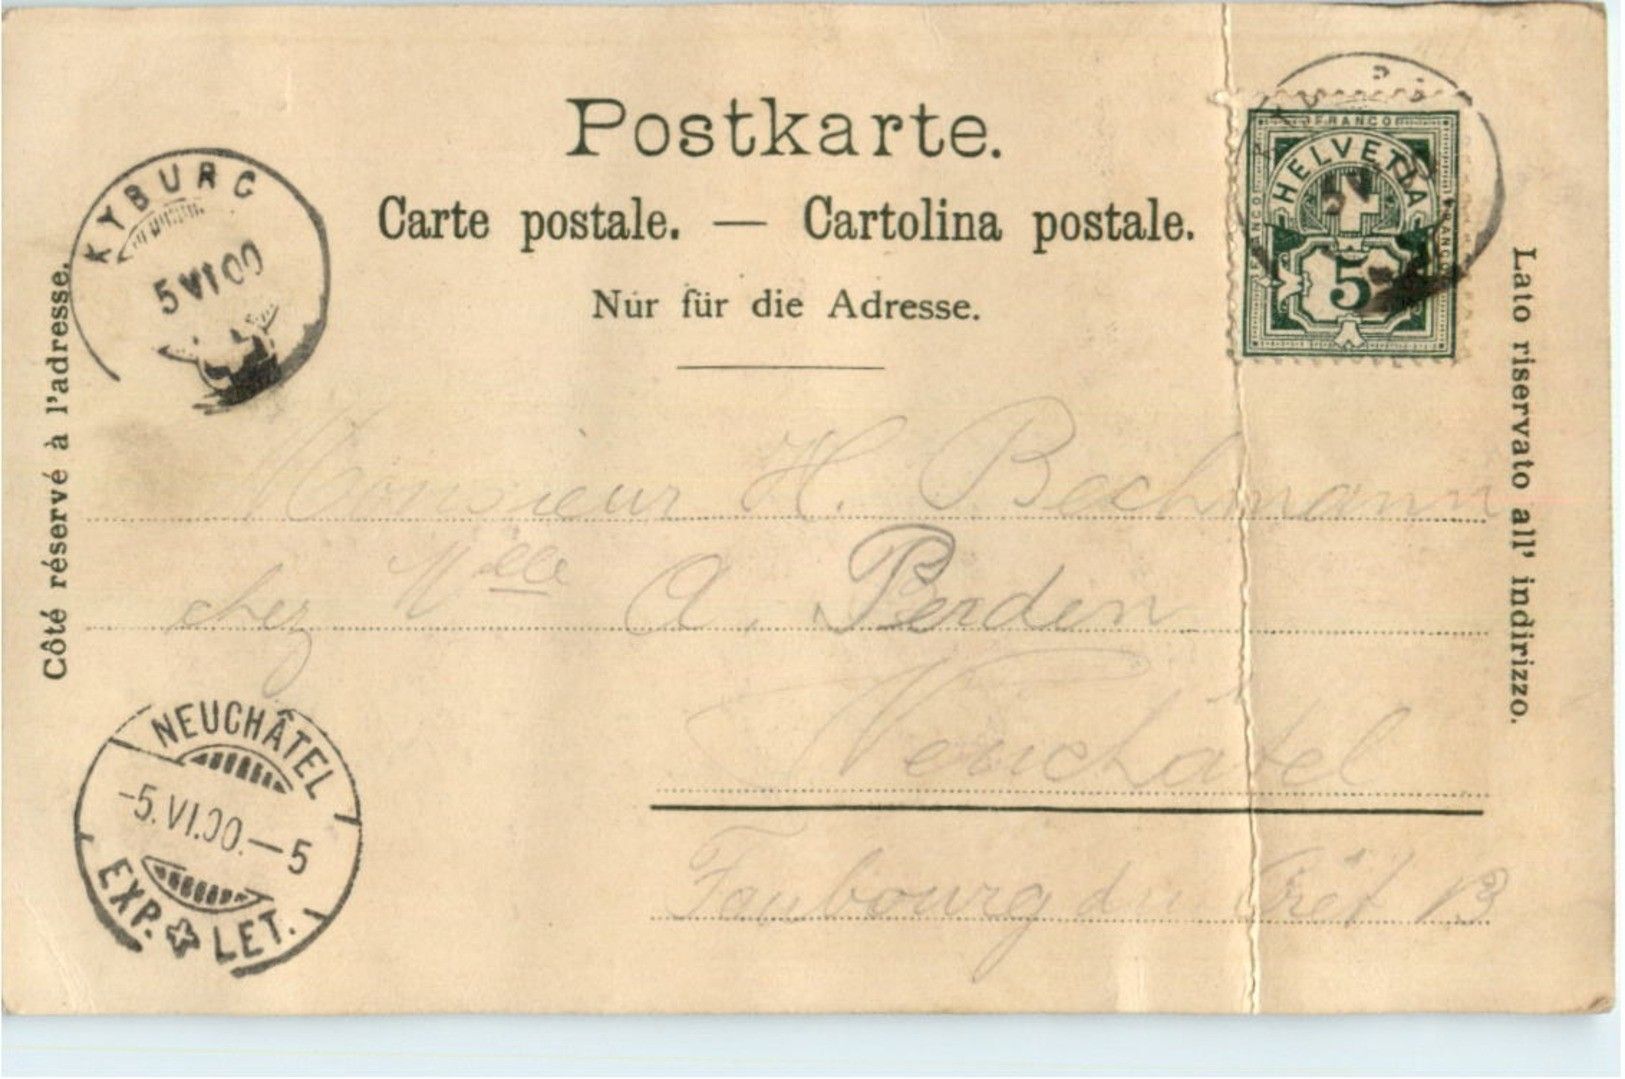 Postkarte.
Carte postale. — Cartolina postale.
Nur für die Adresse.
Côté réservé à l'adresse.
Lato riservato all' indirizzo.
KYBURG
5 VI 00
FRANCO
FRANCO
FRANCO
HELVETIA
5
Monsieur H. Bachmann
chez Mlle A. Perden
Neuchâtel
Faubourg du Crêt 13
NEUCHÂTEL
-5.VI.00.—5
EXP. LET.